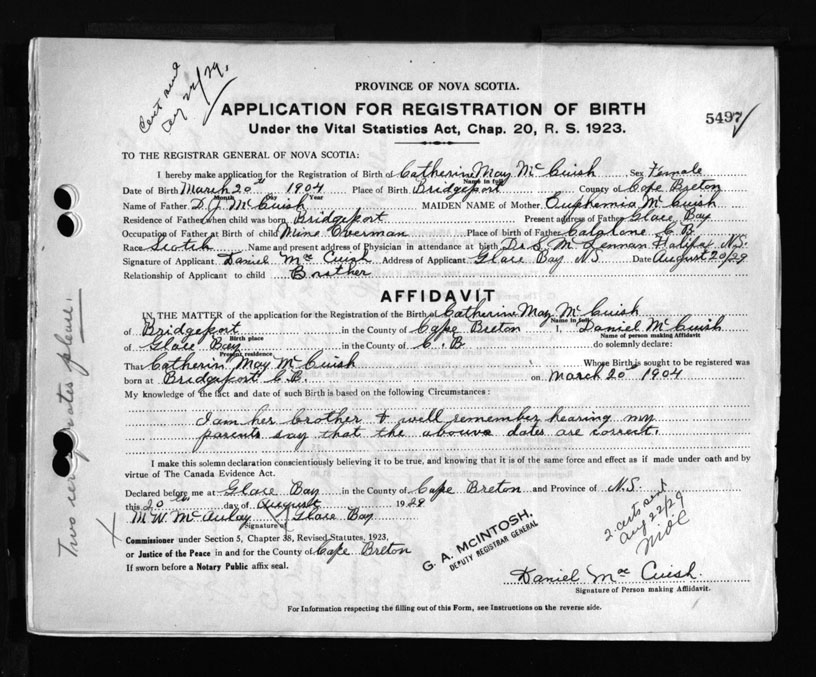 Cert sent
Aug 22/29.
PROVINCE OF NOVA SCOTIA.
APPLICATION FOR REGISTRATION OF BIRTH
5497
Under the Vital Statistics Act, Chap. 20, R. S. 1923.
TO THE REGISTRAR GENERAL OF NOVA SCOTIA:
I hereby make application for the Registration of Birth of Catherine May Mc Cuish Sex Female
Name in full
Date of Birth March 20th 1904 Place of Birth Bridgeport County of Cape Breton
Month Day Year
Name of Father D. J. Mc Cuish MAIDEN NAME of Mother Euphemia Mc Cuish
Residence of Father when child was born Bridgeport Present address of Father Glace Bay
Occupation of Father at Birth of child Mine Overman Place of birth of Father C. B.
Race Scotch Name and present address of Physician in attendance at birth Dr S. Mc Lennan Halifax N.S.
Signature of Applicant Daniel Mc Cuish Address of Applicant Glace Bay N.S Date August 20/29
Relationship of Applicant to child Brother
AFFIDAVIT
IN THE MATTER of the application for the Registration of the Birth of Catherine May Mc Cuish
Name in full
of Bridgeport in the County of Cape Breton I, Daniel Mc Cuish
Birth place Name of person making Affidavit
of Glace Bay in the County of C. B do solemnly declare:
Present residence
That Catherin May Mc Cuish Whose Birth is sought to be registered was
born at Bridgeport C.B. on March 20th 1904
My knowledge of the fact and date of such Birth is based on the following Circumstances:
I am her brother & well remember hearing my
parents say that the abouve dates are correct.
I make this solemn declaration conscientiously believing it to be true, and knowing that it is of the same force and effect as if made under oath and by
virtue of The Canada Evidence Act.
Declared before me at Glace Bay in the County of Cape Breton and Province of N.S.
this 20 th day of August 1929
M. W. Mc Aulay Glace Bay
Signature of
Commissioner under Section 5, Chapter 38, Revised Statutes, 1923,
or Justice of the Peace in and for the County of Cape Breton
If sworn before a Notary Public affix seal.
G. A. McINTOSH,
DEPUTY REGISTRAR GENERAL
2 certs sent
Aug 22/29
Daniel Mc Cuish.
Signature of Person making Affidavit.
For Information respecting the filling out of this Form, see Instructions on the reverse side.
Two certificates please.